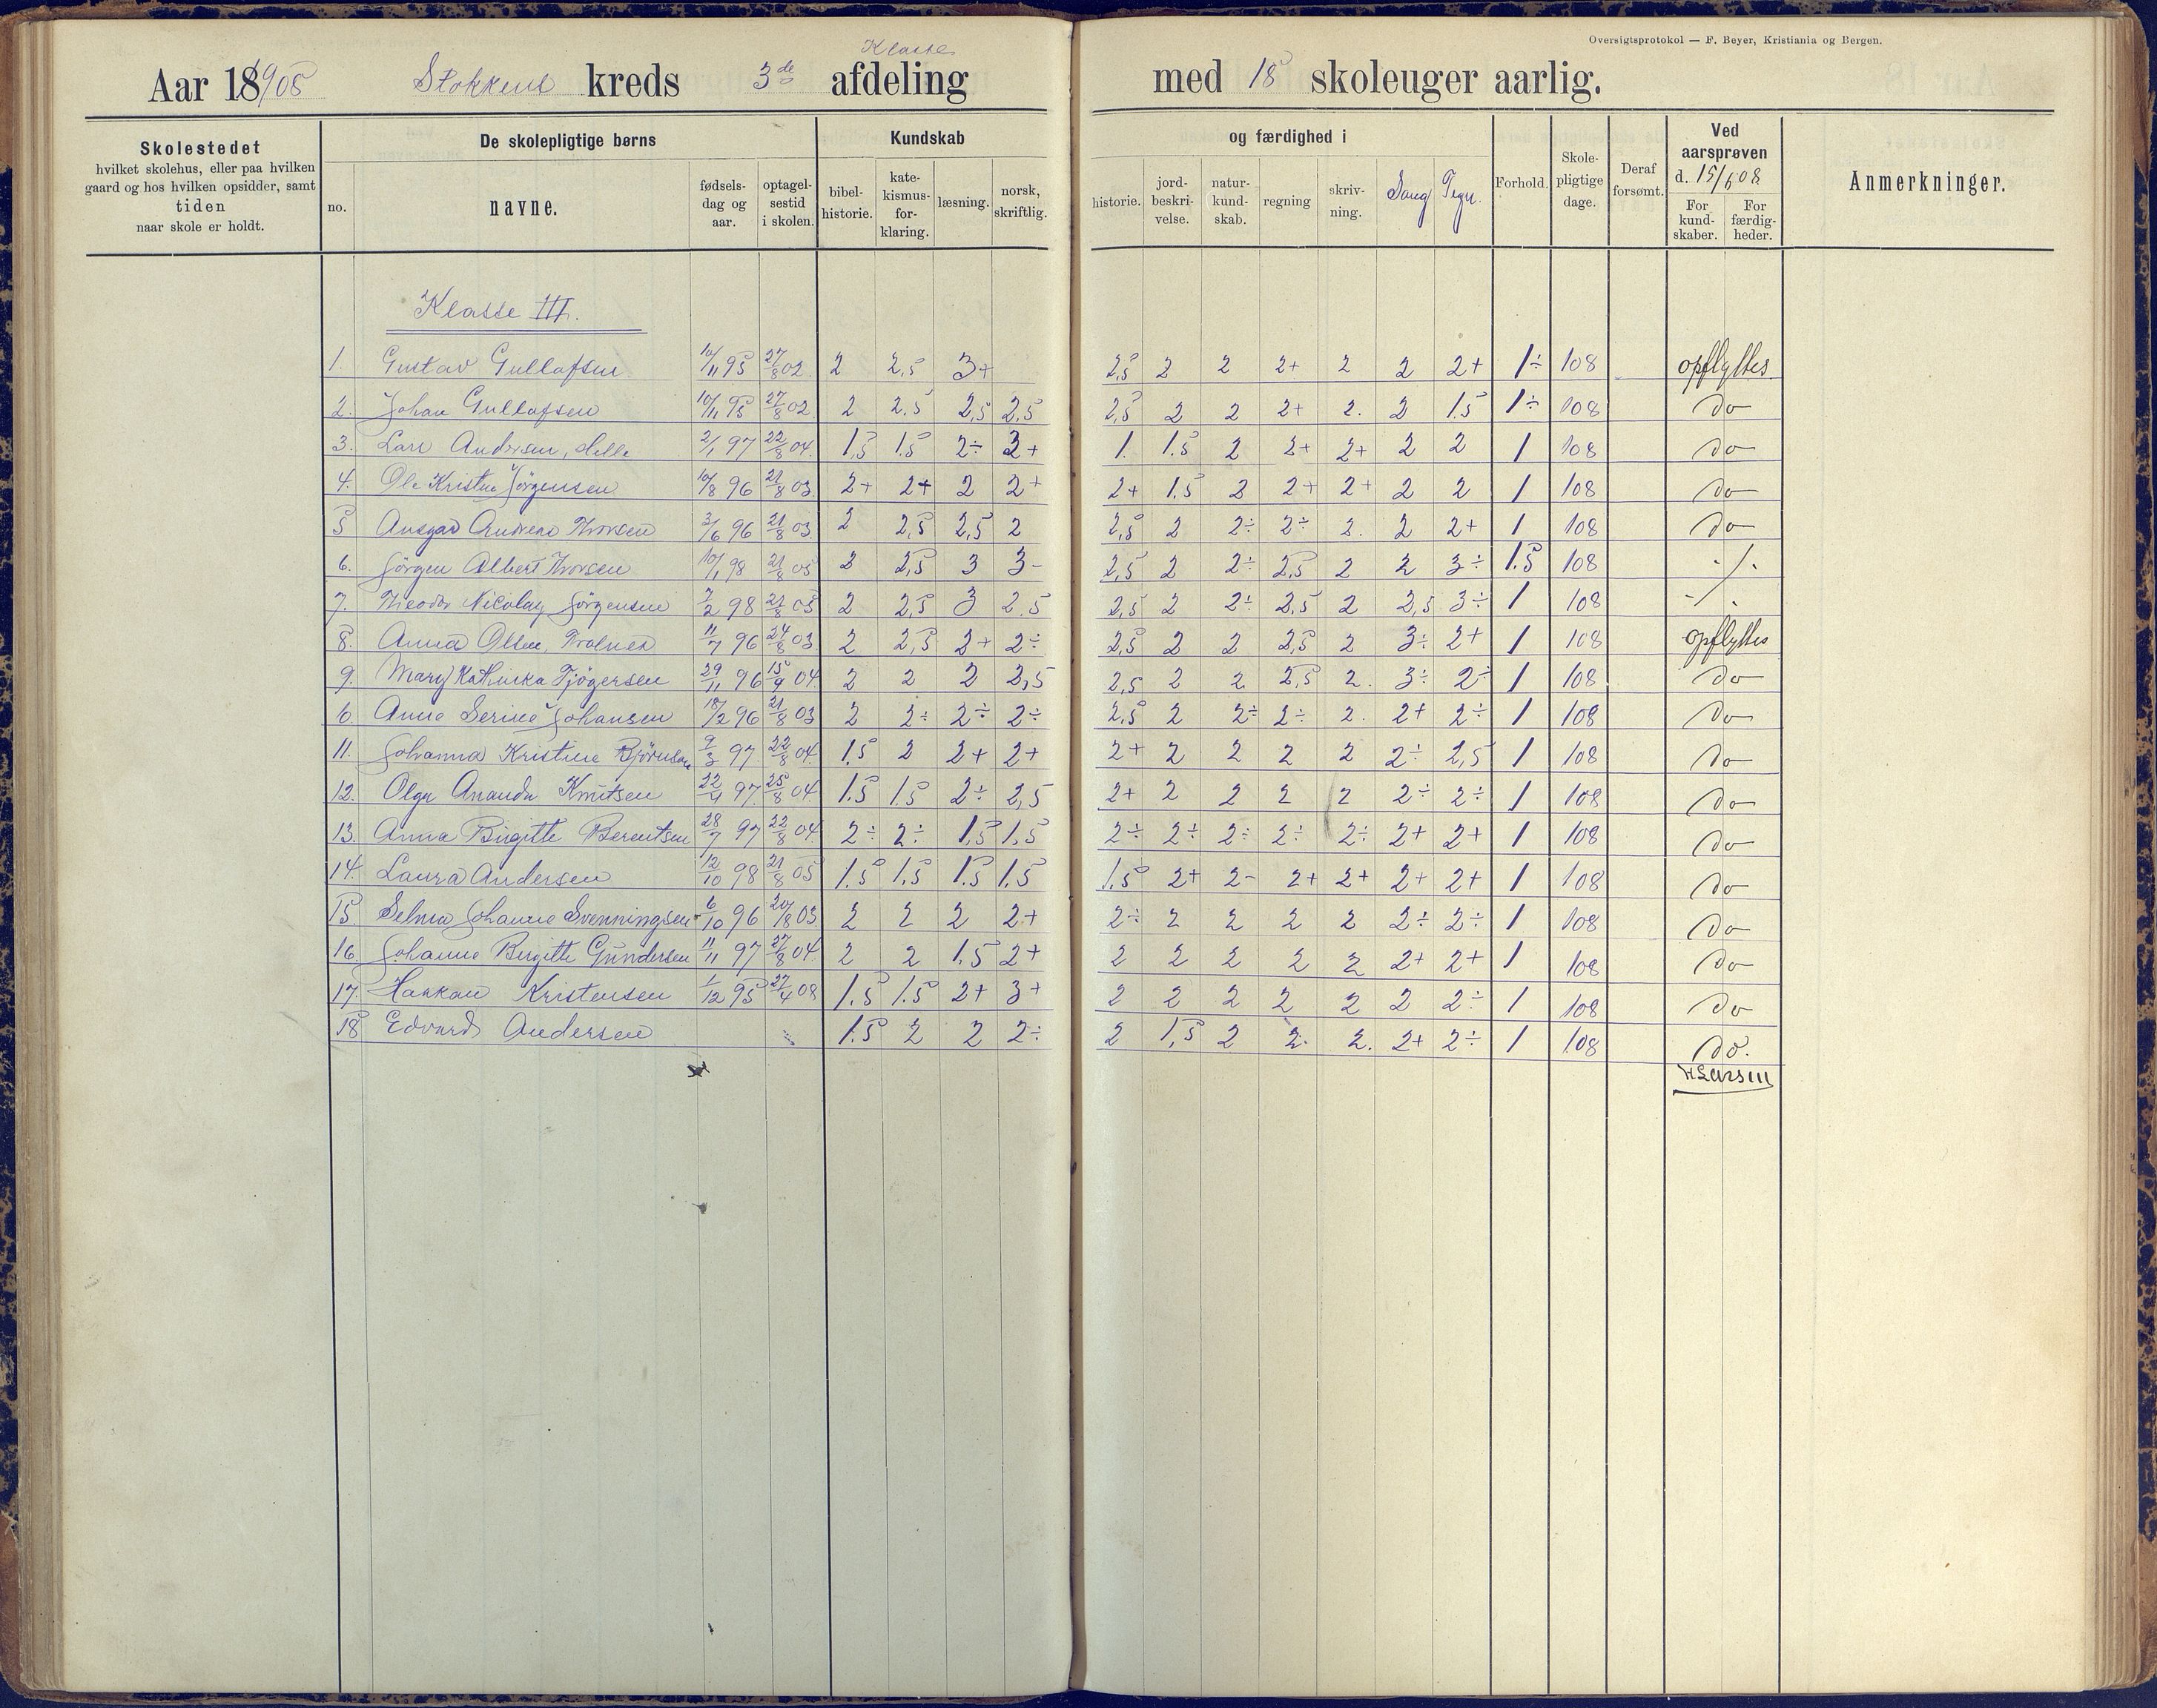 Oversigtsprotokol — F. Beyer, Kristiania og Bergen.
Klasse
Aar 18 1908 Stokkens kreds 3de afdeling med 18 skoleuger aarlig.
Skolestedet
hvilket skolehus, eller paa hvilken
gaard og hos hvilken opsidder, samt
tiden
naar skole er holdt.
De skolepligtige børns
no. navne. fødsels-dag og aar. optagel-sestid i skolen.
Kundskab og færdighed i
bibel-historie. kate-kismus-for-klaring. læsning. norsk, skriftlig. historie. jord-beskri-velse. natur-kund-skab. regning skriv-ning. Sang Tegn. Forhold. Skole-pligtige dage. Deraf forsømt.
Ved aarsprøven d. 15/6 08
For kund-skaber. For færdig-heder.
Anmerkninger.
Klasse III.
1. Gustav Gullofsen 10/11 95 27/8 02 2 2,5 3+ 2,5 2 2 2+ 2 2 2+ 1÷ 108 opflyttes
2. Johan Gullofsen 10/11 95 27/8 02 2 2,5 2,5 2,5 2,5 2 2 2+ 2. 2 1.5 1÷ 108 do
3. Lars Andersen, Helle 2/1 97 22/8 04. 1,5 1.5 2÷ 3+ 1. 1.5 2 2+ 2+ 2 2 1 108 do
4. Ole Kristian Jörgensen 10/8 96 21/8 03 2+ 2+ 2 2+ 2+ 1.5 2 2+ 2+ 2 2 1 108 do
5 Ansgar Andreas Thorsen 3/6 96 21/8 03. 2 2,5 2,5 2 2,5 2 2÷ 2÷ 2. 2 2+ 1 108 do
6. Jörgen Albert Thorsen 10/1 98 21/8 05 2 2,5 3 3- 2,5 2 2÷ 2,5 2 2 3÷ 1.5 108 ·/·
7. Theodor Nicolay Jörgensen 7/2 98 21/8 05 2 2,5 3 2.5 2,5 2 2÷ 2,5 2 2,5 3÷ 1 108 -/.
8. Anna Olsen, 11/7 96 24/8 03 2 2,5 2+ 2÷ 2,5 2 2 2,5 2 3÷ 2+ 1 108 opflyttes
9. Mary Kathinka Tjögersen 29/11 96 15/9 04. 2 2 2 2,5 2,5 2 2 2,5 2. 3÷ 2÷ 1 108 do
6. Anne Serine Johansen 18/2 96 21/8 03 2 2÷ 2÷ 2÷ 2,5 2 2÷ 2÷ 2. 2+ 2÷ 1 108 do
11. Johanna Kristine Björnsen 9/3 97 22/8 04. 1.5 2 2+ 2+ 2+ 2 2 2 2 2÷ 2,5 1 108 do
12. Olga Amanda Knutsen 22/4 97. 25/8 04. 1.5 1.5 2÷ 2,5 2+ 2 2 2 2 2÷ 2÷ 1 108 do
13. Anna Birgitte Berentsen 28/7 97 22/8 04 2÷ 2÷ 1,5 1,5 2÷ 2÷ 2÷ 2÷ 2÷ 2+ 2+ 1 108 do
14. Laura Andersen 12/10 98 21/8 05 1.5 1.5 1.5 1.5 1.5 2+ 2- 2+ 2+ 2+ 2+ 1 108 do
15 Selma Johanne Svenningsen 6/10 96 20/8 03. 2 2 2 2+ 2÷ 2 2 2 2 2÷ 2÷ 1 108 do
16. Johanne Birgitte Gundersen 11/11 97 27/8 04. 2 2 1.5 2+ 2 2 2 2 2 2+ 2+ 1 108 do
17. Haakon Kristensen 1/12 95 27/4 08 1.5 1.5 2+ 3+ 2 2 2 2 2 2 2÷ 1 108 do
18 Edvard Andersen 1.5 2 2 2÷ 2 1,5 2 2. 2. 2+ 2÷ 1 108 do.
H Larsen